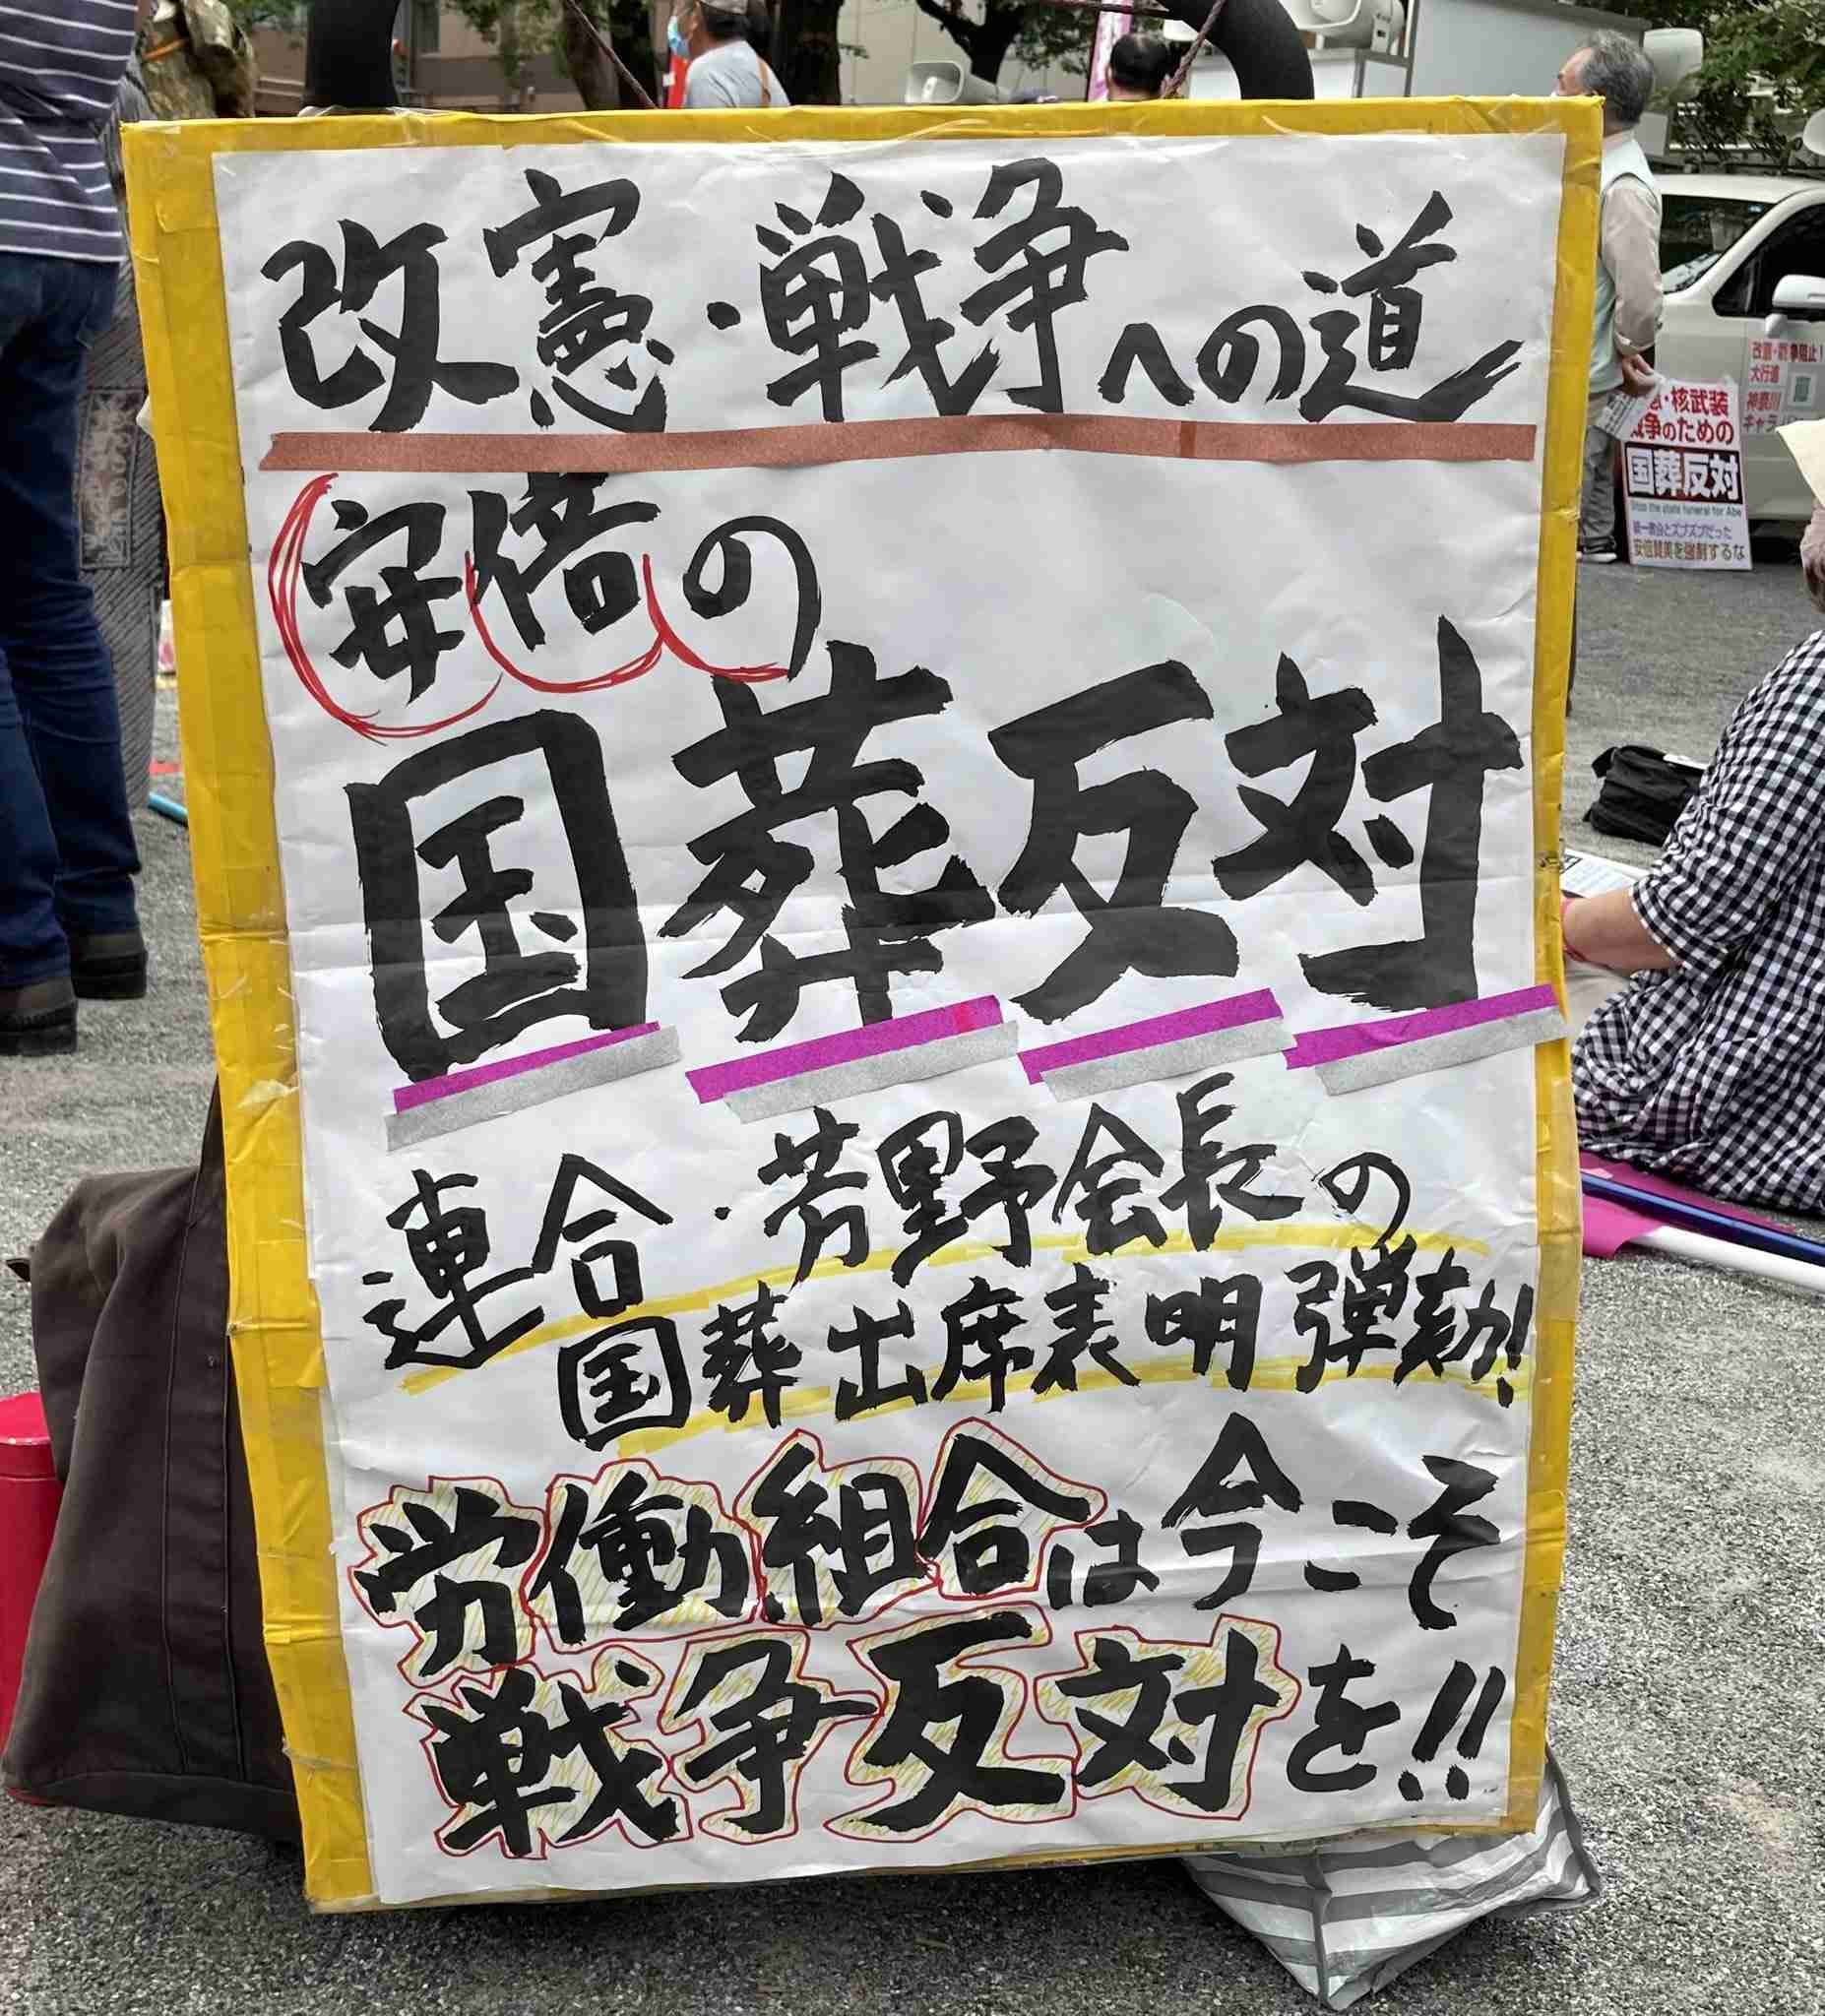 改憲・戦争への道
安倍の
国葬反対
連合・芳野会長の
国葬出席表明弾劾!
労働組合は今こそ
戦争反対を!!
改憲・戦争阻止!
大行進
神奈川
・核武装
戦争のための
国葬反対
Stop the state funeral for Abe
統一教会とズブズブだった
安倍賛美を強制するな